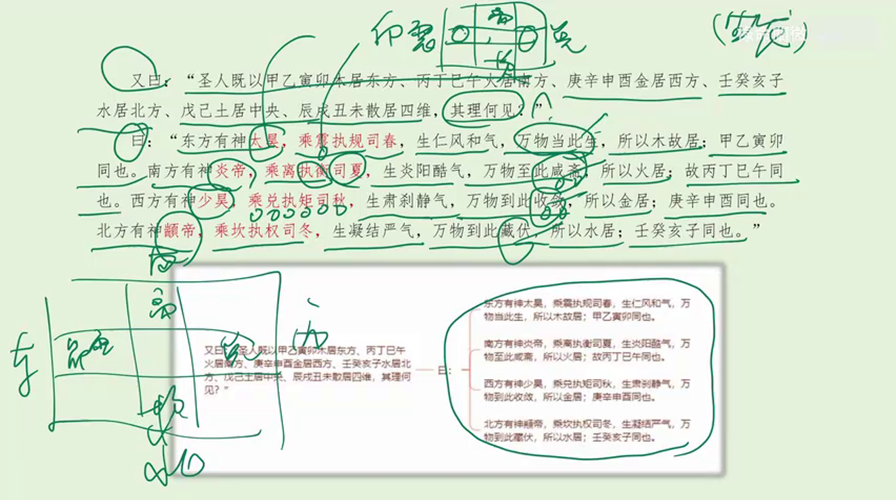 又曰：“圣人既以甲乙寅卯木居东方、丙丁巳午火居南方、庚辛申酉金居西方、壬癸亥子
水居北方、戊己土居中央、辰戌丑未散居四维，其理何见？”
曰：“东方有神太昊，乘震执规司春，生仁风和气，万物当此生，所以木故居；甲乙寅卯
同也。南方有神炎帝，乘离执衡司夏，生炎阳酷气，万物至此咸斋，所以火居；故丙丁巳午同
也。西方有神少昊，乘兑执矩司秋，生肃刹静气，万物到此收敛，所以金居；庚辛申酉同也。
北方有神颛帝，乘坎执权司冬，生凝结严气，万物到此藏伏，所以水居；壬癸亥子同也。”
南
东
离
震
兑
坎
西
北
又曰：“圣人既以甲乙寅卯木居东方、丙丁巳午
火居南方、庚辛申酉金居西方、壬癸亥子水居北
方、戊己土居中央、辰戌丑未散居四维，其理何
见？”
曰：
东方有神太昊，乘震执规司春，生仁风和气，万
物当此生，所以木故居；甲乙寅卯同也。
南方有神炎帝，乘离执衡司夏，生炎阳酷气，万
物至此咸斋，所以火居；故丙丁巳午同也。
西方有神少昊，乘兑执矩司秋，生肃刹静气，万
物到此收敛，所以金居；庚辛申酉同也。
北方有神颛帝，乘坎执权司冬，生凝结严气，万
物到此藏伏，所以水居；壬癸亥子同也。